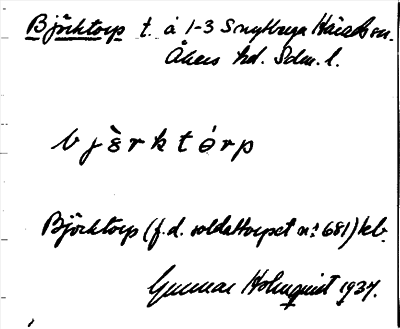 Björktorp t. å 1-3 Snytbyga Härads sn.
Åkers hd. Sdm. l.
bjèrktórp
Björktorp (f.d. soldattorpet nº 681) kb.
Gunnar Holmquist 1937.